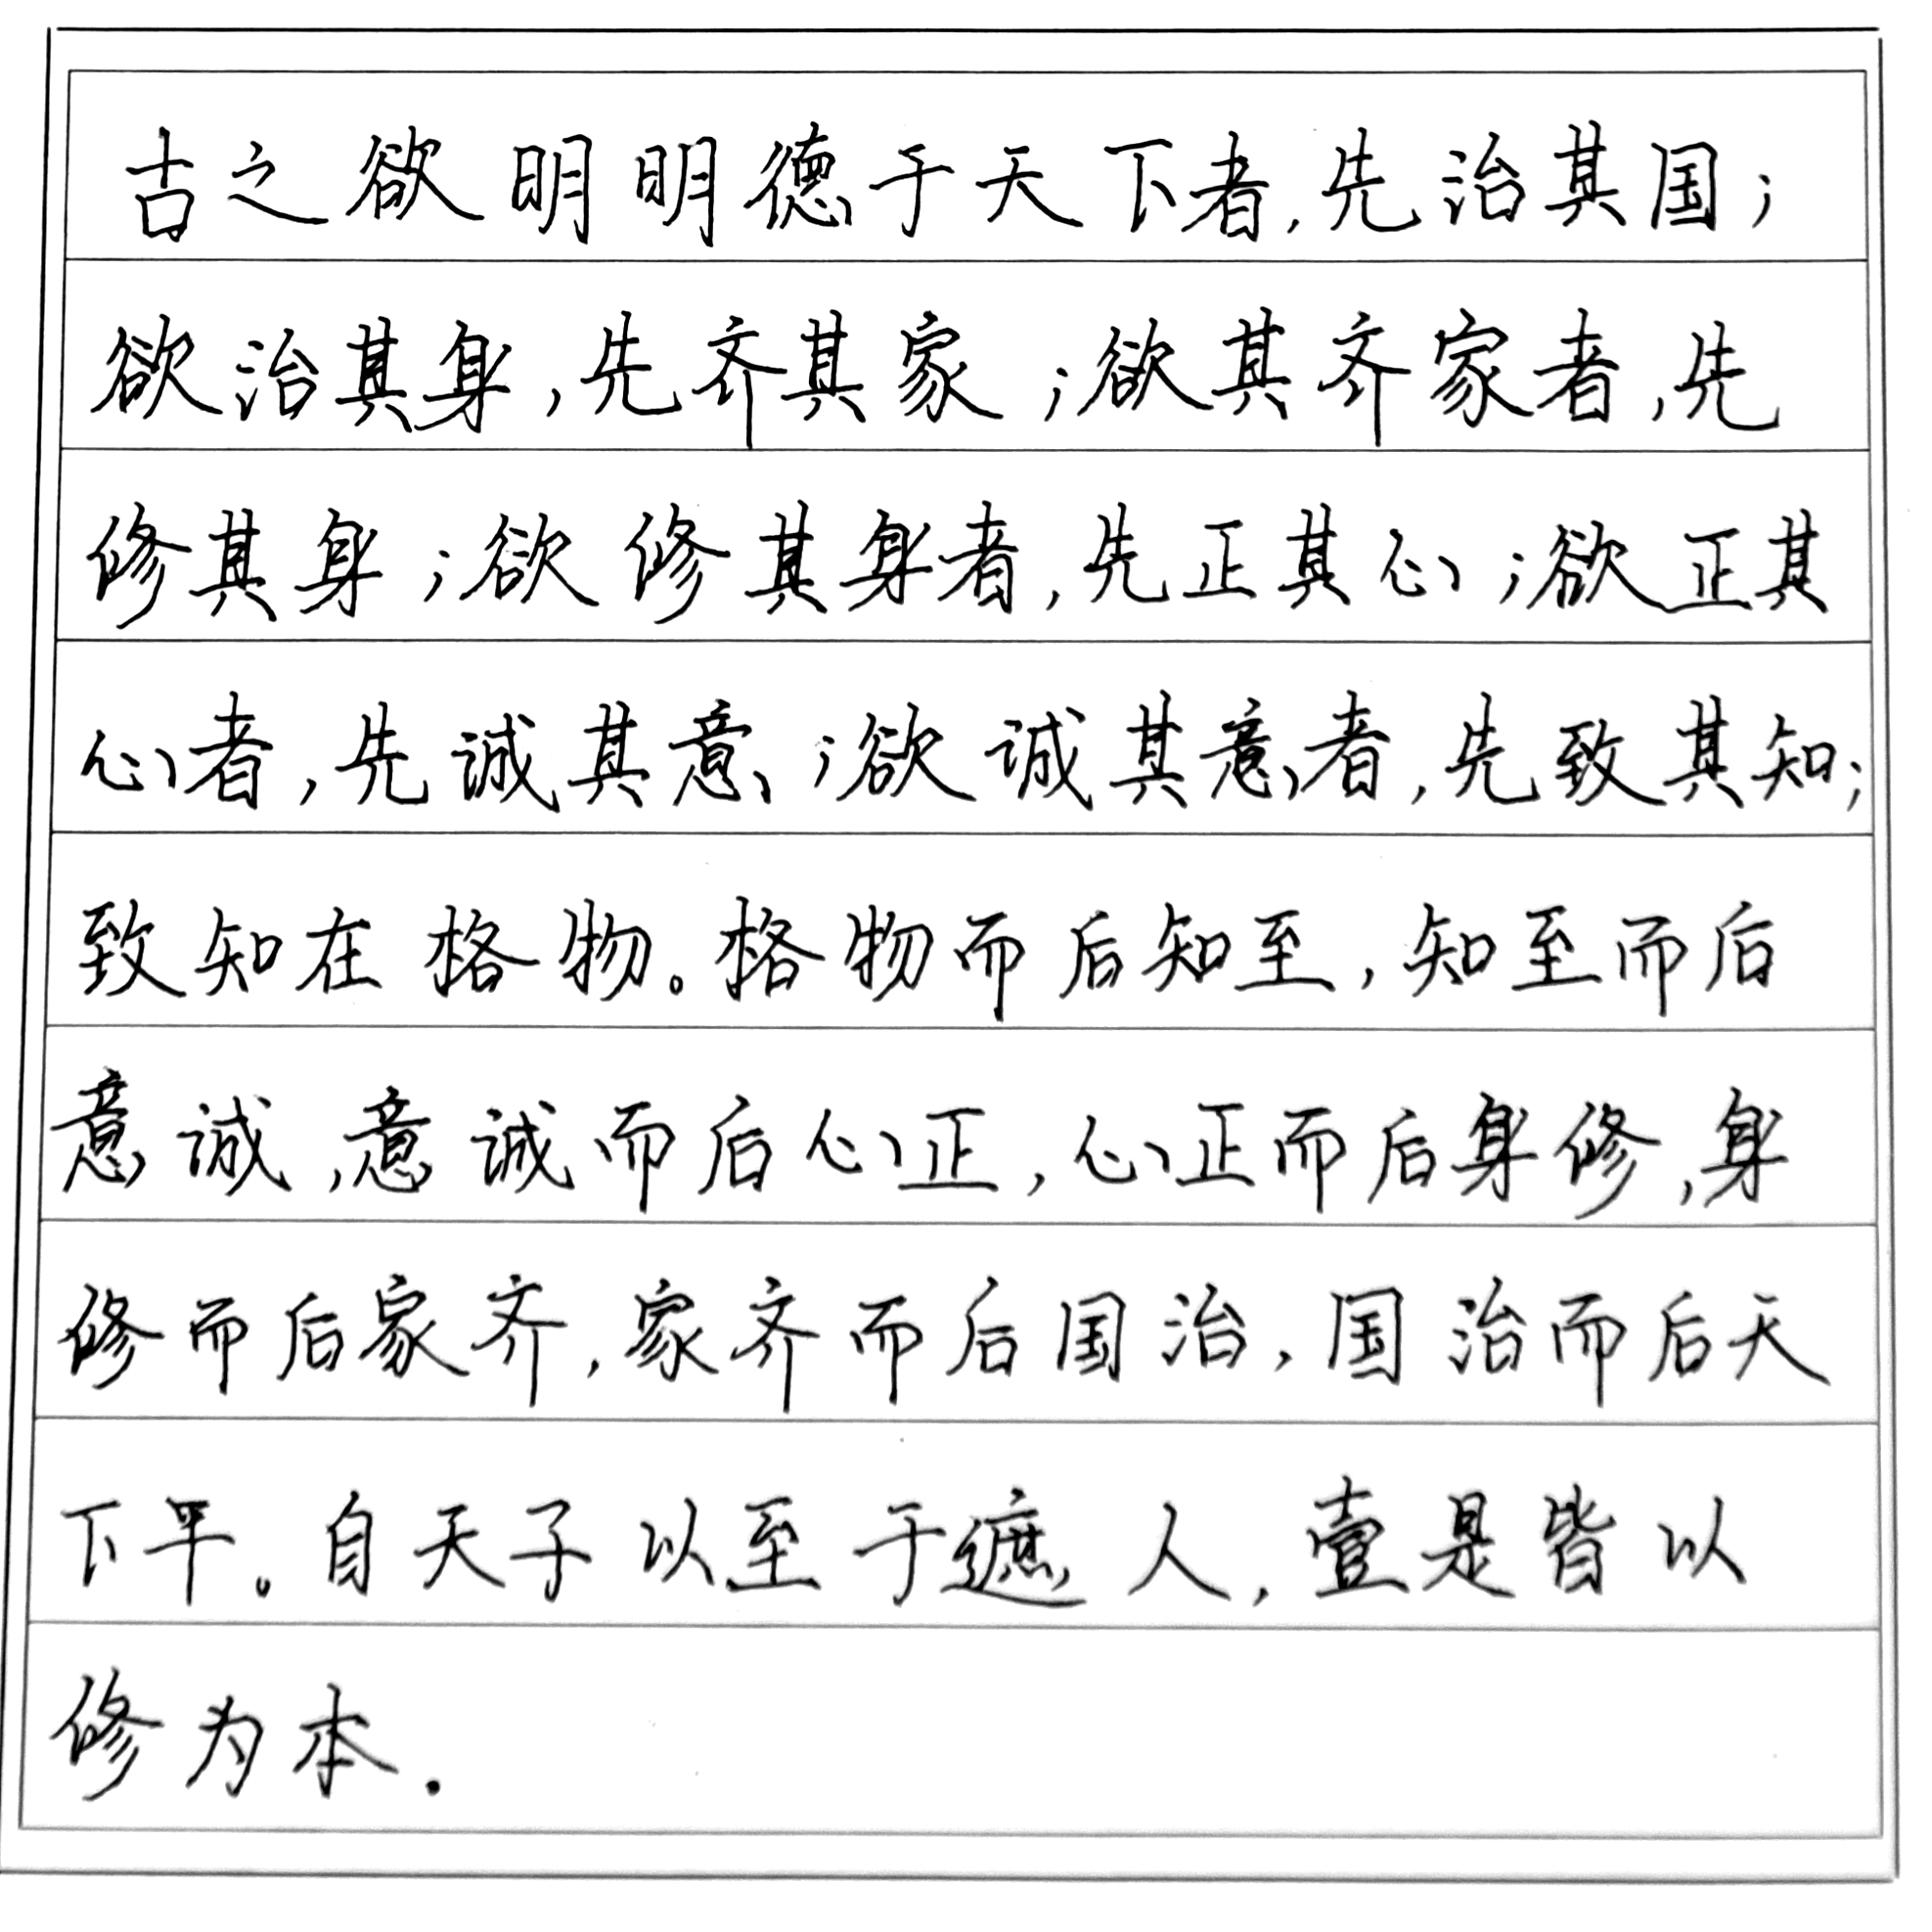 古之欲明明德于天下者,先治其国;
欲治其身,先齐其家;欲其齐家者,先
修其身;欲修其身者,先正其心;欲正其
心者,先诚其意;欲诚其意者,先致其知;
致知在格物。格物而后知至,知至而后
意诚,意诚而后心正,心正而后身修,身
修而后家齐,家齐而后国治,国治而后天
下平。自天子以至于遮人,壹是皆以
修为本.